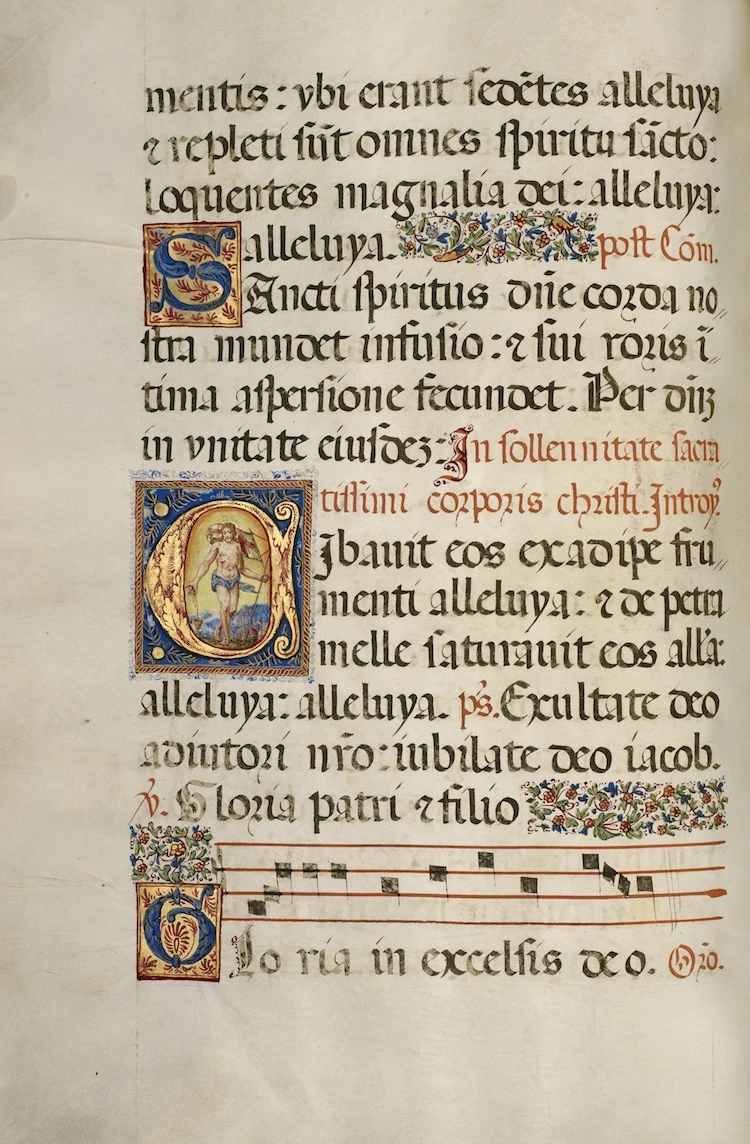 mentis : vbi erant sedētes alleluya
⁊ repleti sūt omnes spiritu sācto:
loquentes magnalia dei : alleluya:
alleluya. post Cōm.
SAncti spiritus dñe corda no
stra mundet infusio : ⁊ sui roris ī
tima aspersione fecundet. Per dñȝ
in vnitate eiusdeȝ : In sollennitate sacra
tissimi corporis christi. Introy.
CIbauit eos exadipe fru
menti alleluya : ⁊ de petra
melle saturauit eos all'a:
alleluya : alleluya. p̄s. Exultate deo
adiutori nr̄o : iubilate deo iacob.
V. Gloria patri ⁊ filio
Glo ria in excelsis deo. Orō.